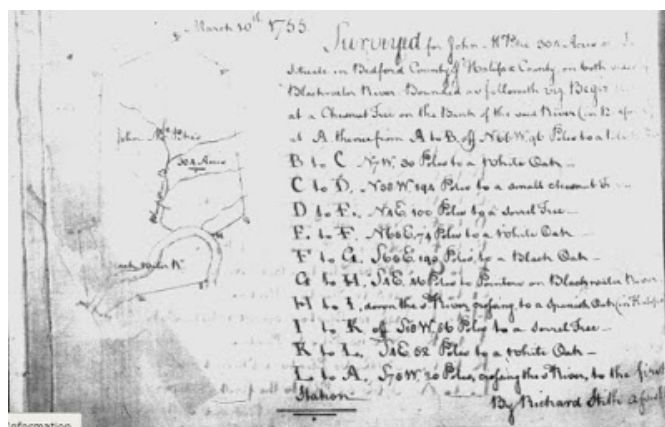 March 20th 1755
Surveyed for John McPike 304 Acres
Situate in Bedford County & Halifax County on both sides
Blackwater River Bounded as followeth viz. Begin
at a Chesnut Tree on the Bank of the said River (in
at A thence from A to B. off N66W. 96 Poles to a
B to C N7W. 30 Poles to a White Oak
C to D. Poles to a small chesnut
D to E. N4E 100 Poles to a Sorrel Tree
E. to F. N60E. 74 Poles to a White Oak
F to G. S60E 190 Poles to a Black Oak
G to H. S4E. Poles to Pointers on Blackwater River
H to I, down the sd River, crosing to a Spanish Oak (in
I to K off S18W. 56 Poles to a Sorrel Tree
K to L. S4E. 52 Poles to a White Oak
L to A. S70W. 20 Poles, crosing the sd River, to the first
Station
By Richard Stith
John McPike's
304 Acres
Information